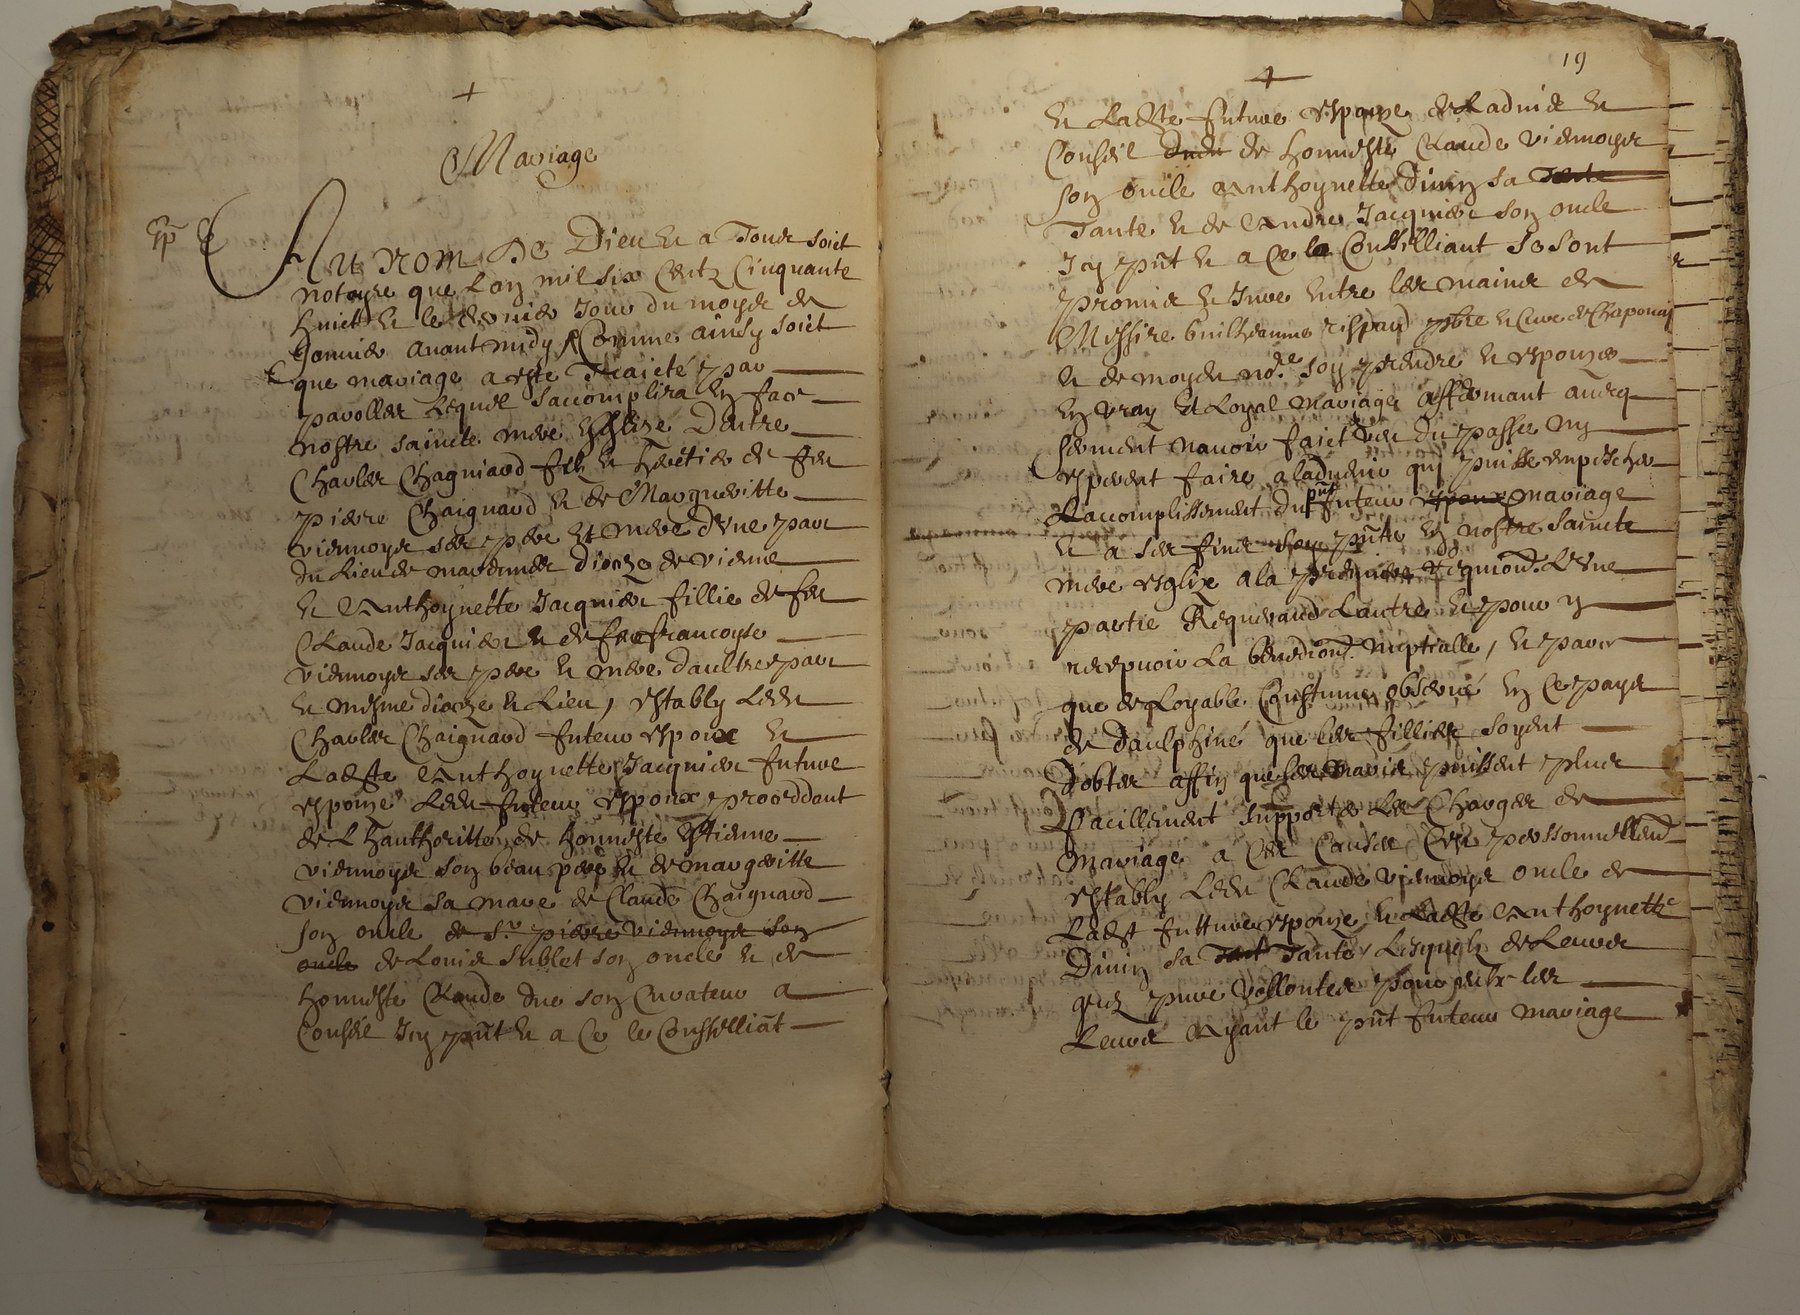 +
Mariage
Exp
Au nom De Dieu et a Tous soict
notoyre que Lan mil six Centz Cinquante
huict et le dernier Jour du moys de
Janvier avant midy Comme ainsy soict
que mariage a este Traicté par
parolles Lequel saccomplira En face
nostre saincte mere Esglize Dentre
Charles Chagniard filz et heretier de feu
Pierre Chaignard et de Margueritte
viennoys ses pere Et mere d'vne part
du Lieu de diocze de vienne
et Anthoynette Jacquier fillie de feu
Claude Jacquier et de feu francoyse
viennoys ses pere et mere daultre part
et mesme diocze et Lieu, estably Ledt
Charles Chaignard futeur espoux et
Ladte Anthoynette Jacquier future
espouze Ledt futeur espoux proceddant
de Lhauthoritte de honneste Estienne
viennoys son beau pere et de margeritte
viennoys sa mere de Claude Chaignard
son oncle de Sr pierre viennoys son
oncle de Louis Sublet son oncle et de
honneste Claude son Curateur a
Conseil Icy pnt et a Ce le Conseilliat
19
+
et Ladte future espouze de Ladvis et
Conseil de honneste Claude viennoys
son oncle Anthoynette Dinin sa Tante
Tante et de Andre Jacquier son oncle
Icy pnt et a Ce la Conseilliant Se sont
promis et Jure Entre les mains de
Messire Guilheaume pbre et Cure de Chaponay
et de moy dt nore soy prendre et espouzer
En vray Et Loyal mariage affermant avecq
serment navoir faict du passe ny
esperent faire aladvenir qui puisse empescher
Laccomplissement du pnt futeur espoux mariage
et a ses fins En nostre saincte
mere esglize a la premiere Lvne
partie Requerand Lautre et pour y
recepvoir La benediond nuptialle, et parce
que de Loyable Coustume observé En Ce pays
de daulphiné que les fillies soyent
dobtes affin que les maris puissent plus
facillement supporter Les Charges de
mariage a Ces Causes Cest personnellemt
estably Ledt Claude viennoys oncle de
Ladt futture espouze et Ladte Anthoynette
Dinin sa Tante Lesquelz de Leurs
grez pure vollontes pour eulx les
Leurs Ayant le pnt futeur mariage